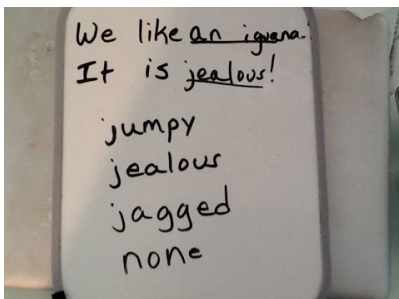 We like an iguana.
It is jealous!
jumpy
jealous
jagged
none